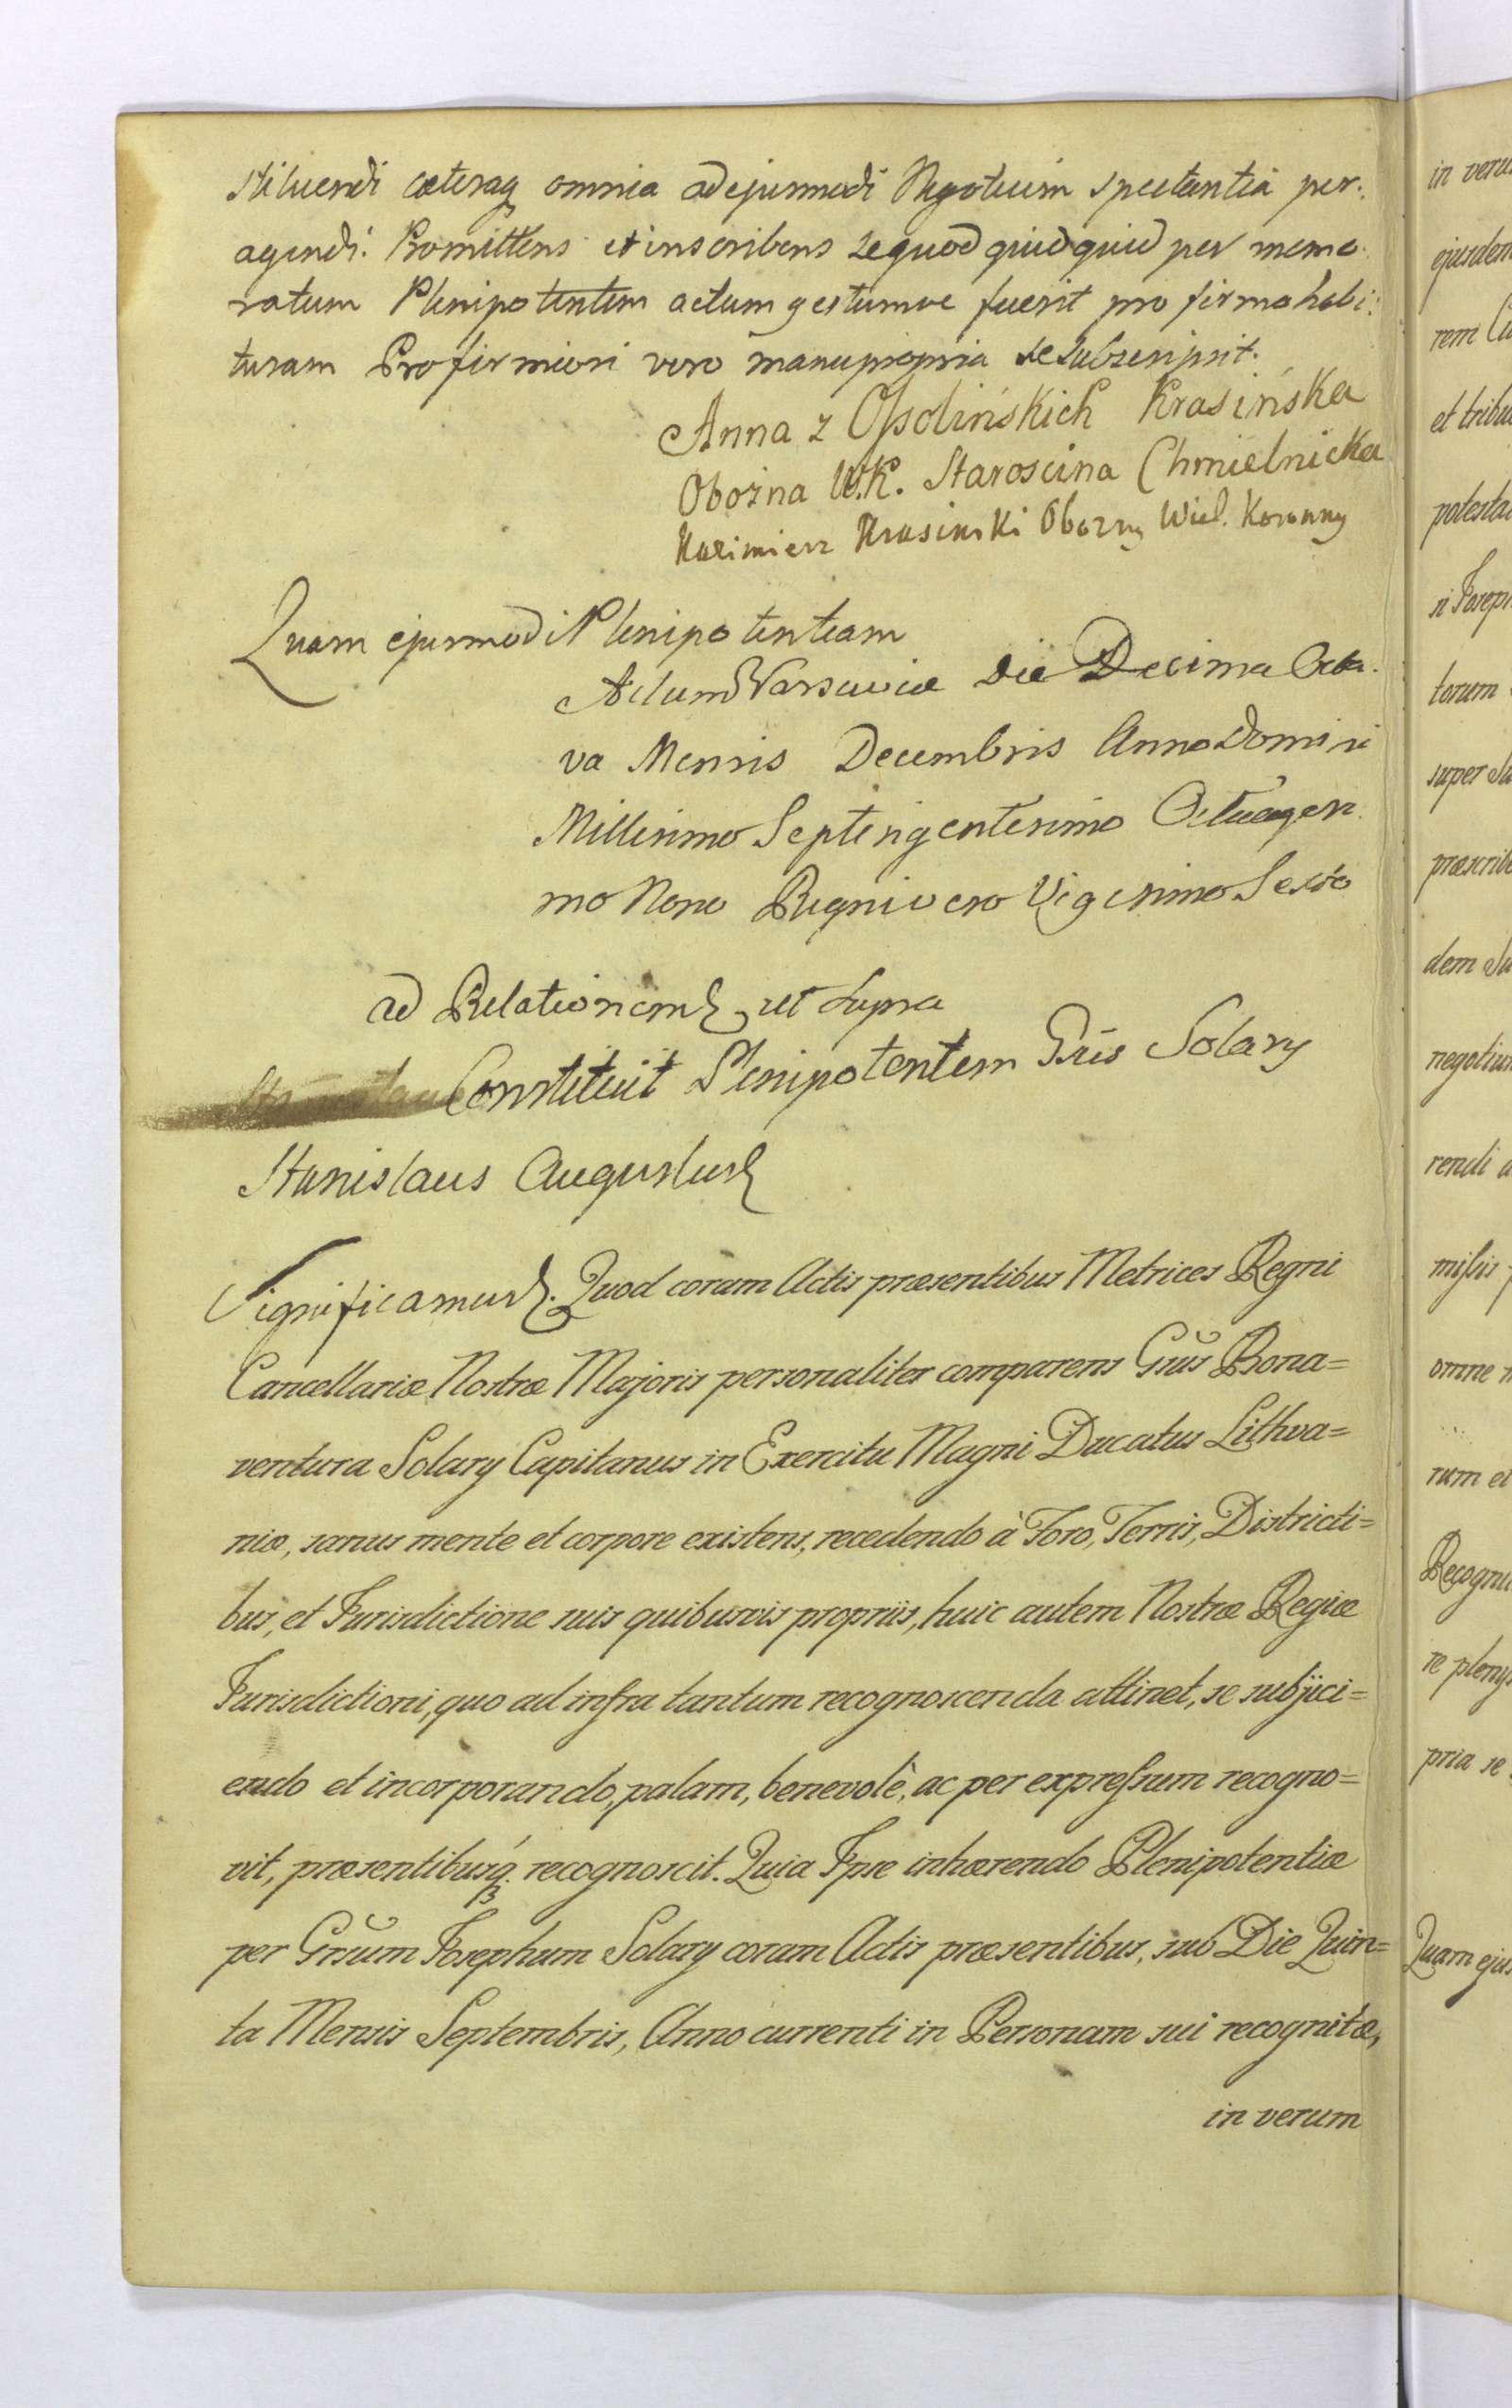 stituendi cæteraq omnia ad ejusmodi Negotium spectantia per:
agendi. Promittens et inscribens se quod quidquid per memo
ratum Plenipotentem actum gestumve fuerit pro firmo habi:
turam Pro firmiori vero manu propria se subscripsit.
Anna z Ossolińskich Krasińska
Oboźna W.K. Starościna Chmielnicka
Kazimierz Krasinski Obozny Wiel. Koronny
Quam ejusmodi Plenipotentiam
Actum Varsaviæ Die Decima Octa.
va Mensis Decembris Anno Domini
Millesimo Septingentesimo Octuagesi.
mo Nono Regni vero Vigesimo Sexto
ad Relationem ut supra
Constituit Plenipotentem Gsis Solary
Stanislaus Augustus
Significamus. Quod coram Actis præsentibus Metrices Regni
Cancellariæ Nostræ Majoris personaliter comparens Gsus Bona=
ventura Solary Capitanus in Exercitu Magni Ducatus Lithva=
niæ, sanus mente et corpore existens, recedendo à Foro, Terris, Districti=
bus, et Jurisdictione suis quibusvis propriis, huic autem Nostræ Regiæ
Jurisdictioni, quo ad infra tantum recognoscenda attinet, se subjici=
endo et incorporando, palam, benevolè, ac per expressum recogno=
vit, præsentibusq. recognoscit. Quia Ipse inhærendo Plenipotentiæ
per Gsum Josephum Solary coram Actis præsentibus, sub Die Quin=
ta Mensis Septembris, Anno currenti in Personam sui recognitæ,
in verum